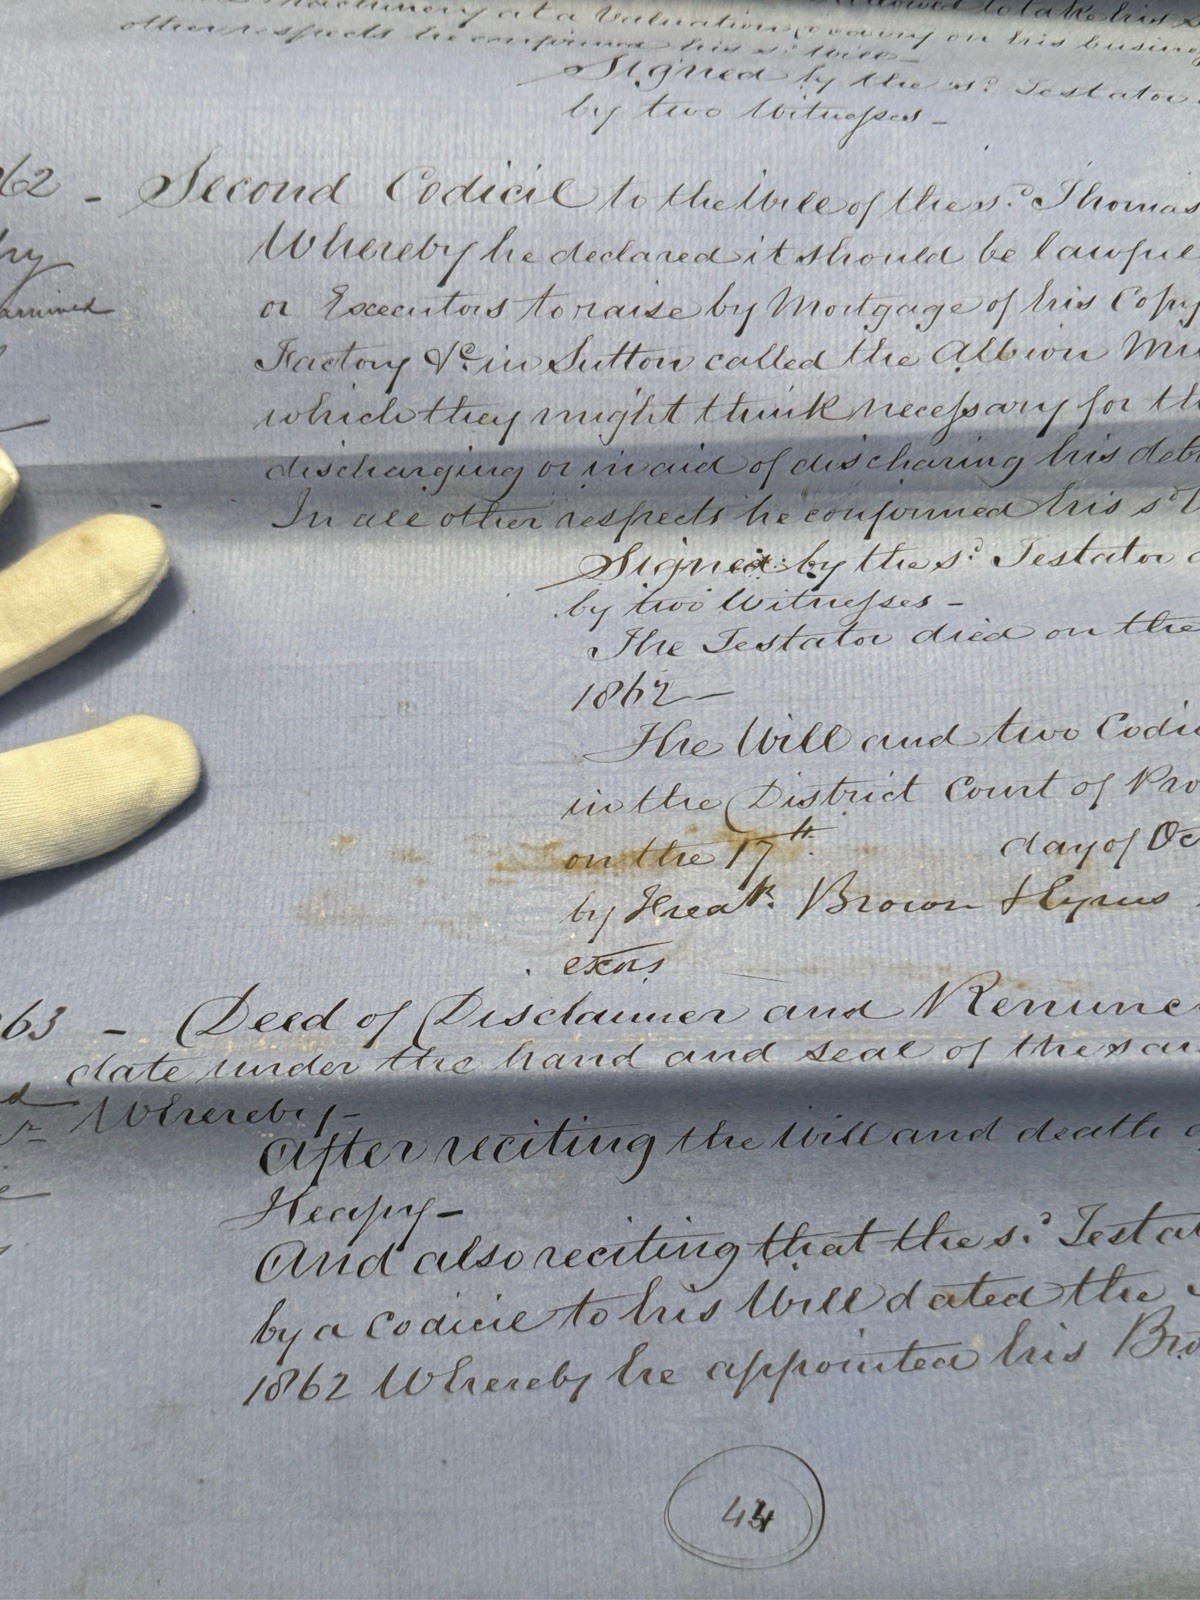 Machinery at a Valuation carry on his busine
other respects he confirmed his sd. Will -
Signed by the sd. Testator
by two Witnesses -
62 - Second Codicil to the Will of the sd. Thomas
Whereby he declared it should be lawful
or Executors to raise by Mortgage of his Copy
Factory &c. in Sutton called the Albion Mi
which they might think necessary for th
discharging or in aid of discharing his debt
In all other respects he confirmed his sd
Signed by the sd. Testator
by two Witnesses -
The Testator died on the
1862 -
The Will and two Codi
in the District Court of Pro
on the 17th. day of Oc
by Fredk. Brown Hyrus
exors
63 - Deed of Disclaimer and Renunc
date under the hand and seal of the sd
Whereby -
After reciting the Will and death
Heapy -
And also reciting that the sd. Testat
by a codicil to his Will dated the
1862 Whereby he appointed his Bro
44